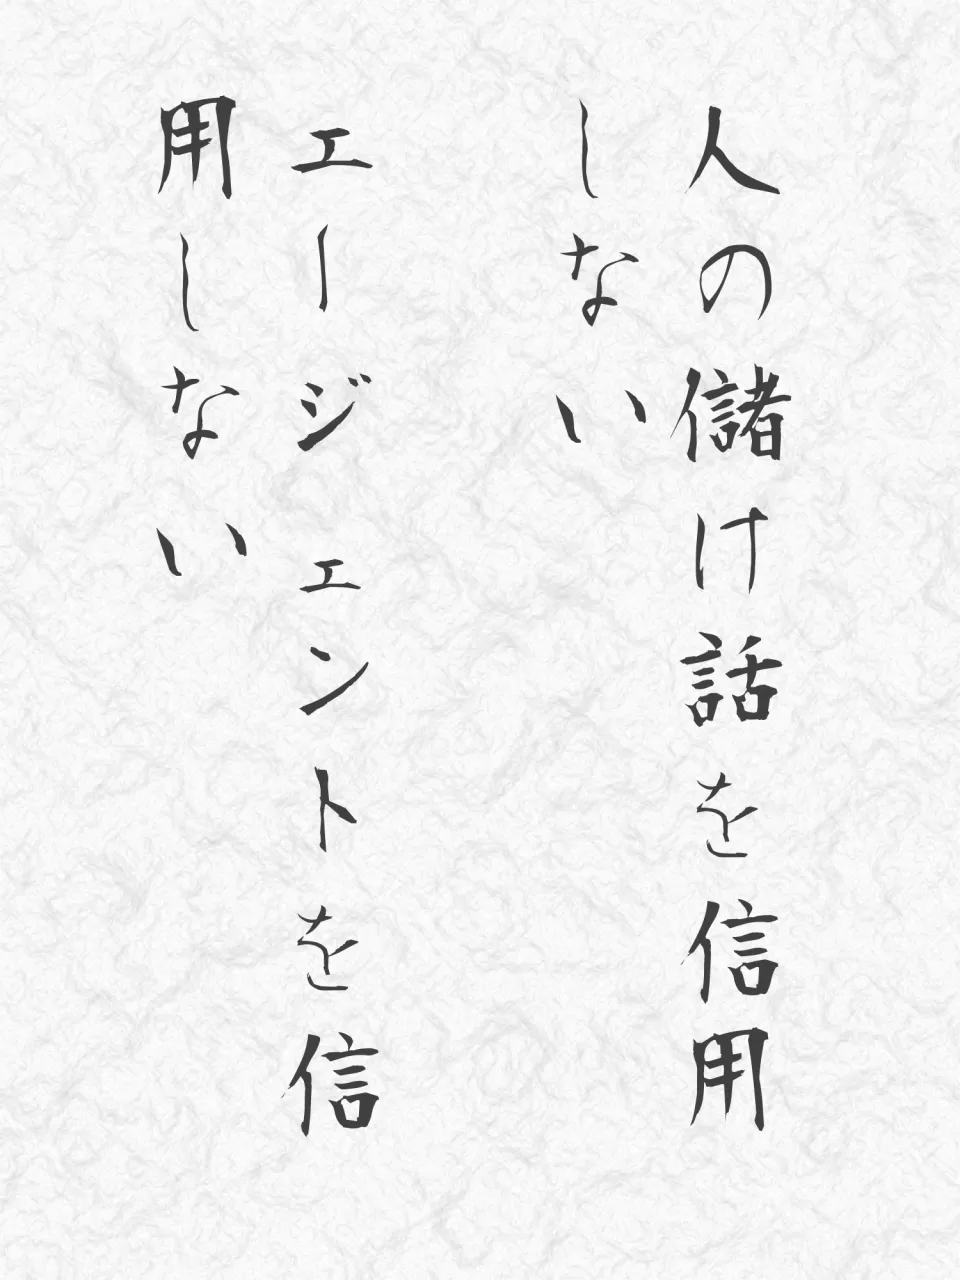 人の儲け話を信用
しない
エージェントを信
用しない